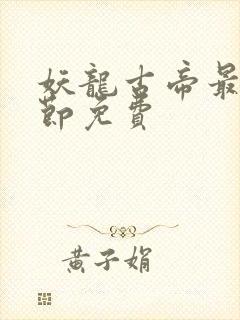 妖龍古帝最
節免費
黃子娟